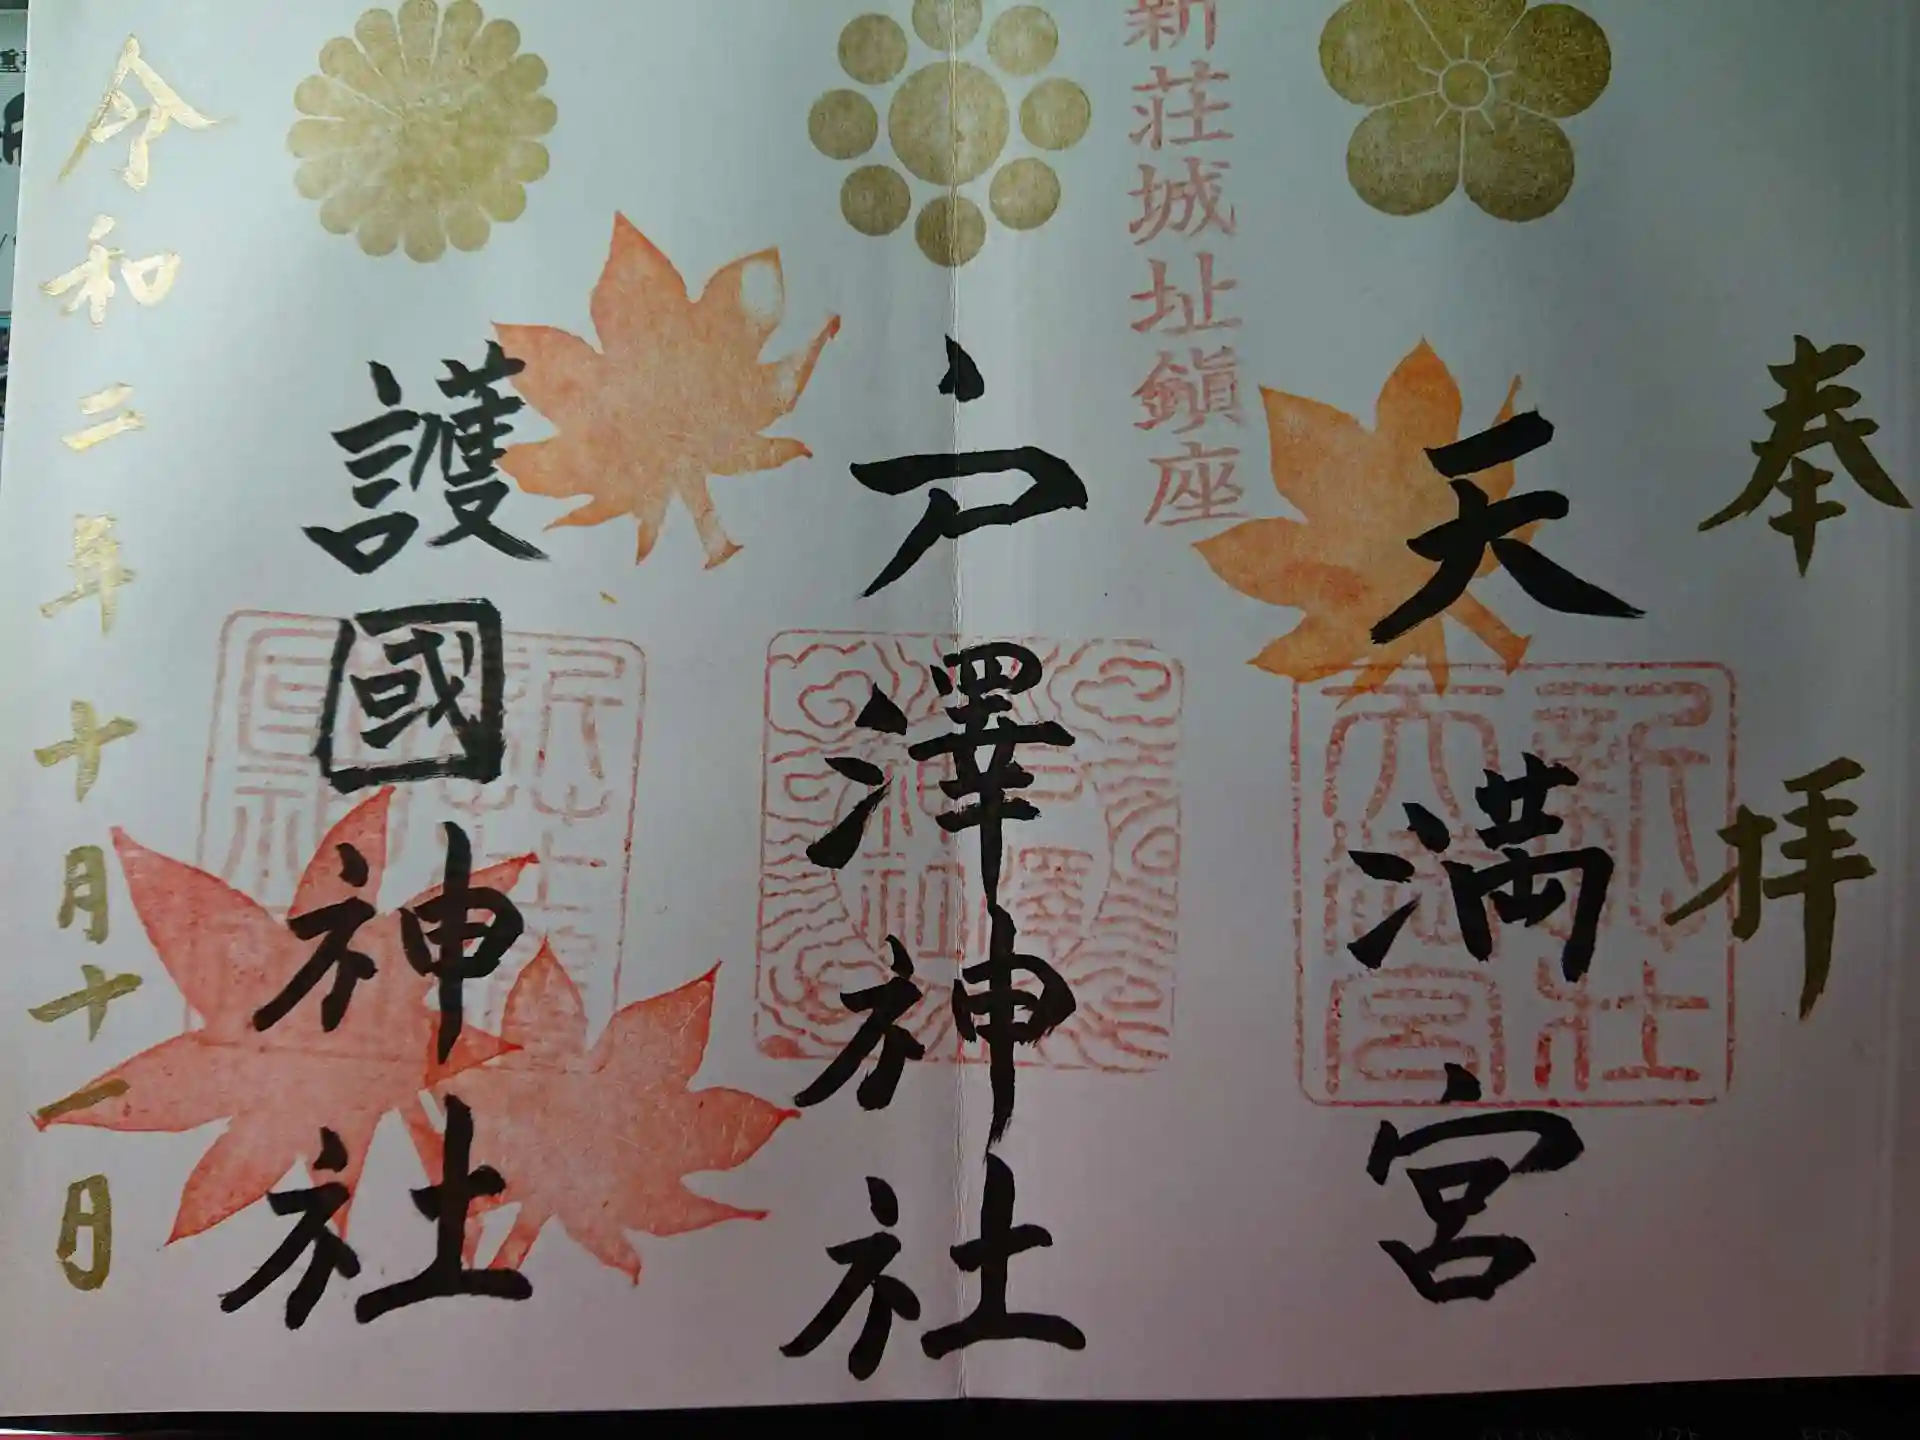 奉拝
天満宮
新荘城址鎮座
戸澤神社
護國神社
令和二年十月十一日
新荘
天満宮
戸澤
神社